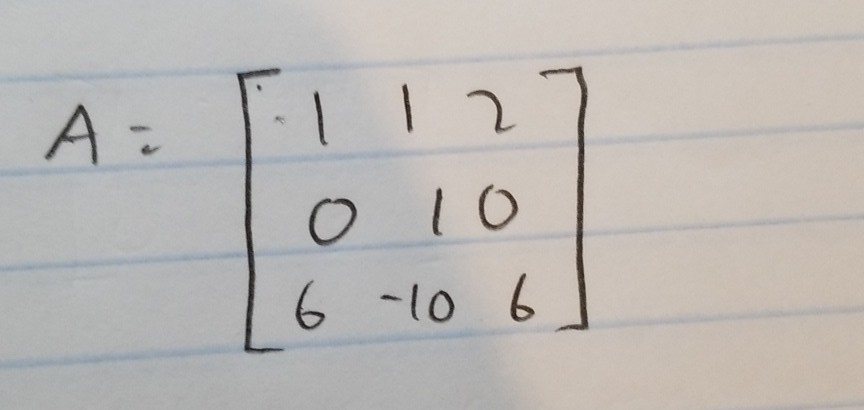 A = [ -1 1 2
0 1 0
6 -10 6 ]